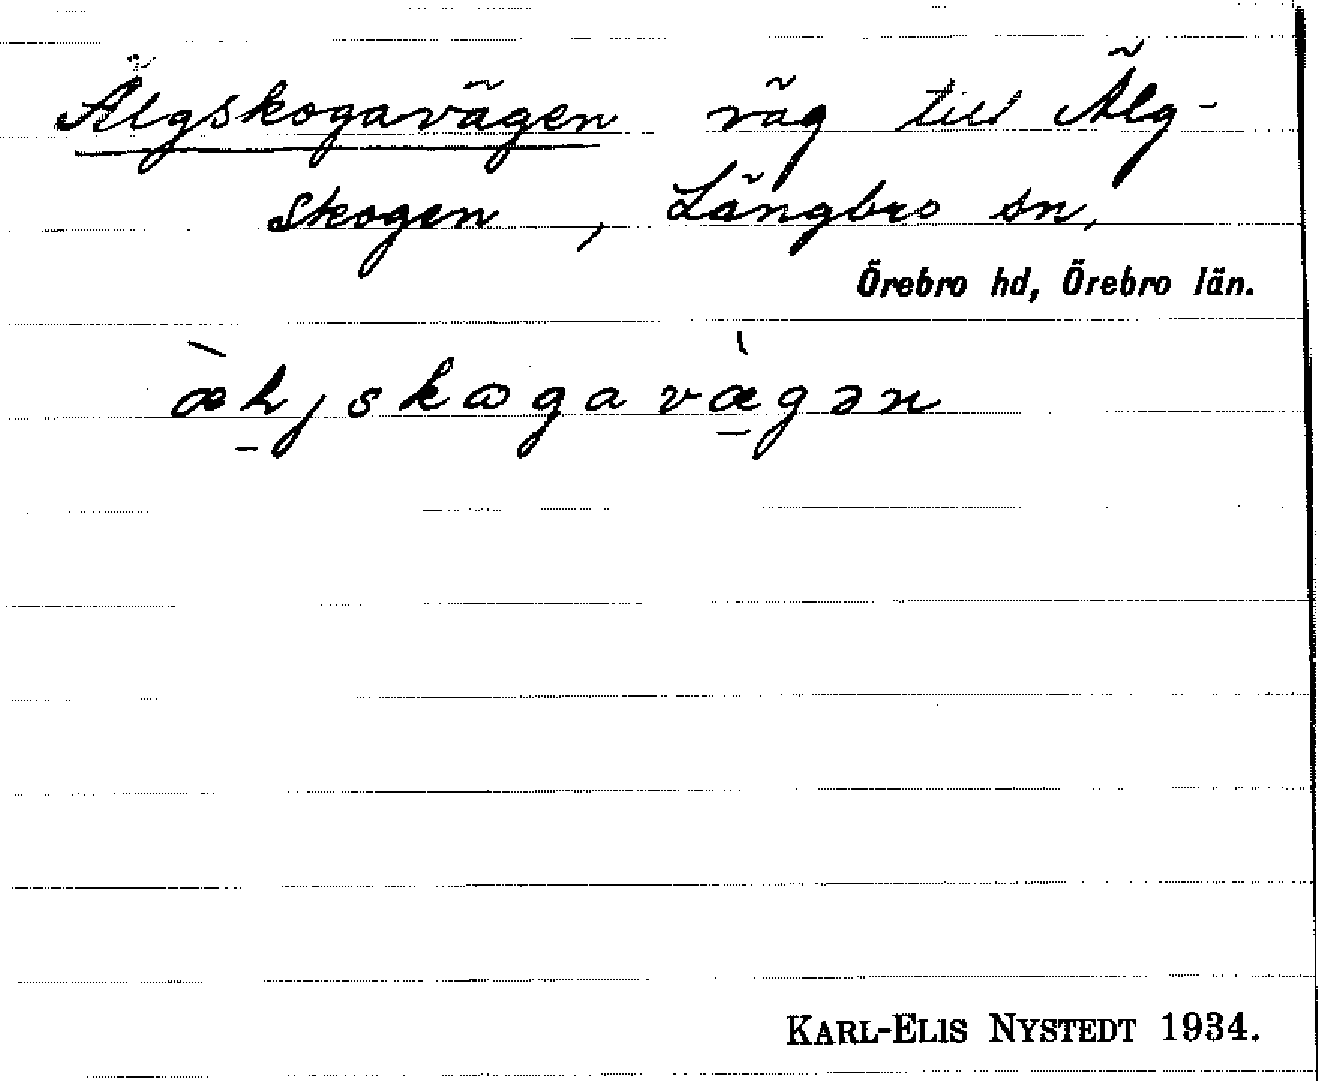 Älgskogavägen väg till Älg-
skogen, Längbro sn,
Örebro hd, Örebro län.
æ̀ljskogavæ̀gən
KARL-ELIS NYSTEDT 1934.